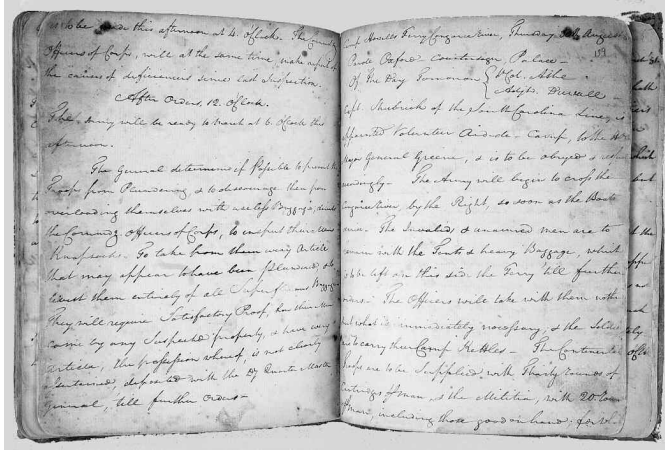 to be made this afternoon at 4. OClock. The Comdg.
Officers of Corps, will at the same time, make report of
the causes of deficiencies since last Inspection.
After Orders, 12. OClock.
The Army will be ready to march at 6. OClock this
afternoon.
The General determines if Possible to prevent the
Troops from Plundering, & to discourage them from
overloading themselves with useless Baggage, directs
the Commdg. officers of Corps, to inspect their Mens
Knapsacks. To take from them every Article
that may appear to have been Plundered, & to
divest them entirely of all Superfluous Baggage.
They will require Satisfactory Proof, how this Men
came by any Suspected property, & have every
article, the possession whereof, is not clearly
ascertained, deposited with the Dy Quarter Master
general, till further Orders —
Camp Howells Ferry Congaree River, Thursday August
Parole Oxford. Countersign, Palace —
Of the Day Tomorrow Col. Ashe
Duvall
Capt. Shubrick of the South Carolina Line, is
appointed Volunteer Aid-de-Camp, to the
Major General Greene, & is to be obeyed &
accordingly — The Army will begin to cross the
Congaree River, by the Right, so soon as the Boats
The Invalids & unarmed men are to
remain with the Tents & heavy Baggage, which
is to be left on this side the Ferry till further
orders. The Officers will take with them nothing
but what is immediately necessary, & the Soldiers
are to carry their Camp Kettles — The Continental
Troops are to be Supplied with Thirty rounds of
Cartridges & man, & the Militia, with 20.
& man, including those good on hand; for